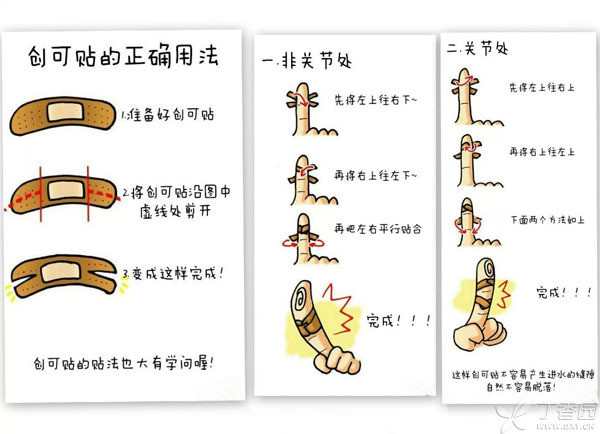 创可贴的正确用法
1.准备好创可贴
2.将创可贴沿图中
虚线处剪开
3.变成这样完成!
创可贴的贴法也大有学问喔!
一.非关节处
先将左上往右下~
再将右上往左下~
再把左右平行贴合
完成!!!
二.关节处
先将左上往右上
再将右上往左上
下面两个方法如上
完成!!!
这样创可贴不容易产生进水的缝隙
自然不容易脱落!
丁香园
WWW.DXY.CN